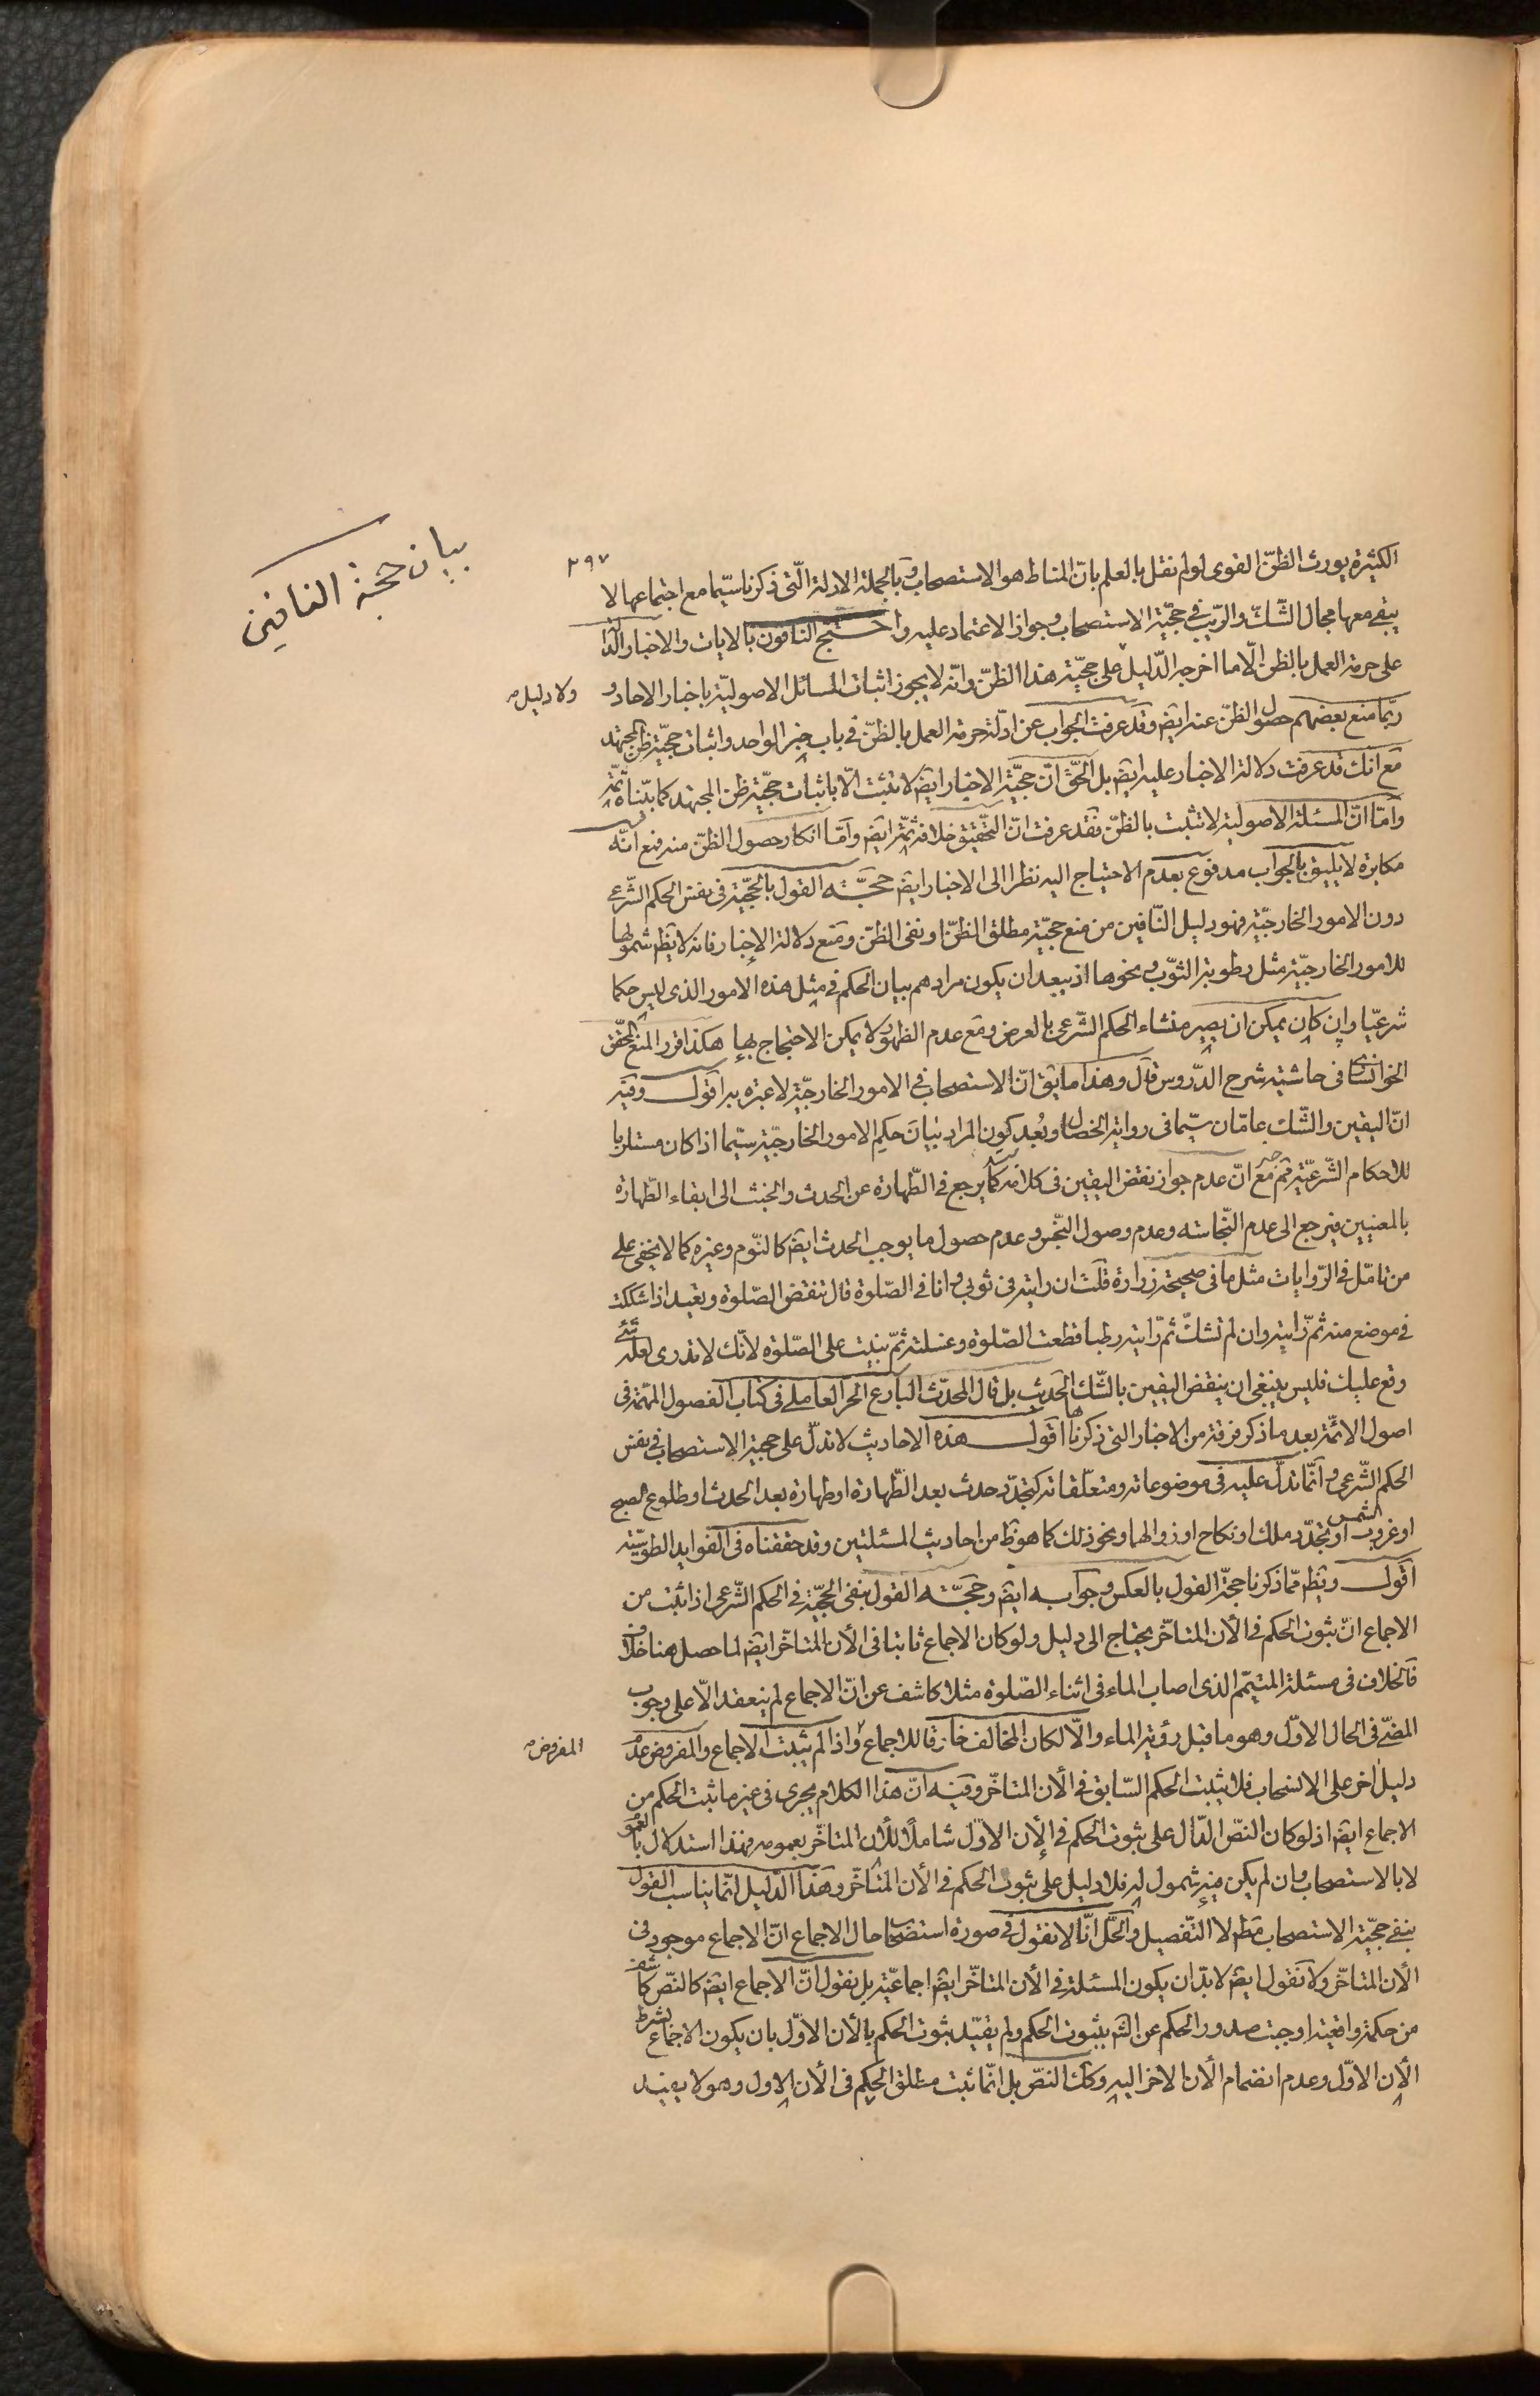 ٢٩٧
بيان حجة النافين
الكثيرة يورث الظنّ القوى لو لم نقل بالعلم بانّ المناط هو الاستصحاب وبالجملة الادلة الّتى ذكرنا سيّما مع اجتماعها لا
يبقى معها مجال الشّكّ والرّيب في حجّيّة الاستصحاب وجواز الاعتماد عليه واحتجّ النافون بالايات والاخبار الدّالّة
على حرمة العمل بالظن الّا ما اخرجه الدّليل على حجيّة هذا الظنّ وانّه لا يجوز اثبات المسائل الاصوليّة باخبار الاحاد و
ولا دليل صح
ربّما منع بعضهم حصول الظنّ عنه ايضَ وقد عرفت الجواب عن ادلّة حرمة العمل بالظنّ في باب خبر الواحد واثبات حجيّة ظن المجتهد
مع انّك قد عرفت دلالة الاخبار عليه ايضَ بل الحقّ انّ حجيّة الاخبار ايضَ لا تثبت الّا باثبات حجّيّة ظن المجتهد كما بيّناه ثمّة
وامّا انّ المسئلة الاصولية لا تثبت بالظنّ فقد عرفت انّ التحقيق خلافه ثمّة ايضَ وامّا انكار حصول الظنّ منه فمع انّه
مكابرة لا يليق بالجواب مدفوع بعدم الاحتياج اليه نظرا الى الاخبار ايضَ حجّة القول بالحجّيّة في نفس الحكم الشّرعي
دون الامور الخارجيّة فهو دليل النّافين من منع حجيّة مطلق الظنّ او نفى الظنّ ومنع دلالة الاخبار فانه لا يظهر شمولها
للامور الخارجيّة مثل رطوبة الثوب ونحوها اذ يبعد ان يكون مرادهم بيان الحكم في مثل هذه الامور الذى ليس حكما
شرعيّا وان كان يمكن ان يصير منشاء الحكم الشّرعي بالعرض ومع عدم الظهور لا يمكن الاحتجاج بها هكذا قرر المنع المحقّق
الخوانسارى في حاشية شرح الدّروس قال وهذا ما يقَ انّ الاستصحاب في الامور الخارجيّة لا عبرة به اقول وفيه
انّ اليقين والشّك عامّان سيّما في رواية الخصال وبُعد كون المراد بيان حكم الامور الخارجيّة سيّما اذا كان مستلزما
للاحكام الشّرعيّة مع انّ عدم جواز نقض اليقين في كلامه كما يرجع في الطّهارة عن الحدث والخبث الى ابقاء الطّهارة
بالمعنيين فيرجع الى عدم النّجاسة وعدم وصول النّجس وعدم حصول ما يوجب الحدث ايضَ كالنّوم وغيره كما لا يخفى على
من تامّل في الرّوايات مثل ما في صحيحة زرارة قلت ان رايته في ثوبي وانا في الصّلوة قال تنقض الصّلوة وتعيد اذا شككت
في موضع منه ثمّ رايته وان لم تشكّ ثم رايته رطبا قطعت الصّلوة وغسلته ثمّ بنيت على الصّلوة لانّك لا تدرى لعله شئ
وقع عليك فليس ينبغى ان ينقض اليقين بالشّك الحديث بل قال المحدّث البارع الحر العاملى في كتاب الفصول المهمّة في
اصول الائمّة بعد ما ذكر فرقة من الاخبار التى ذكرناها اقول هذه الاحاديث لا تدلّ على حجية الاستصحاب في نفس
الحكم الشّرعي وانّما تدلّ عليه في موضوعاته ومتعلّقاته كتجدّد حدث بعد الطّهارة او طهارة بعد الحدث او طلوع الصبح
او غروب الشمس او تجدّد ملك او نكاح او زوالهما ونحو ذلك كما هو ظَ من احاديث المسئلتين وقد حققناه في الفوايد الطوسيّة
اقول ويظهر ممّا ذكرنا حجّة القول بالعكس وجوابه ايضَ وحجّة القول بنفى الحجّيّة في الحكم الشّرعي اذا ثبت من
الاجماع انّ ثبوت الحكم في الأن المتأخّر يحتاج الى دليل ولو كان الاجماع ثابتا في الأن المتاخّر ايضَ لما حصل هنا خلاف
فالخلاف في مسئلة المتيمّم الذى اصاب الماء في اثناء الصّلوة مثلا كاشف عن انّ الاجماع لم ينعقد الّا على وجوب
المضىّ في الحال الاوّل وهو ما قبل رؤية الماء والّا لكان المخالف خارقا للاجماع واذا لم يثبت الاجماع والمفروض عدم
المفروض صح
دليل اخر على الانسحاب فلا يثبت الحكم السّابق في الأن المتاخّر وفيه انّ هذا الكلام يجرى في غير ما ثبت الحكم من
الاجماع ايضَ اذ لو كان النصّ الدّال على ثبوت الحكم في الأن الاوّل شاملًا للأن المتاخّر بعمومه فهذا استدلال بالعموم
لا بالاستصحاب وان لم يكن فيه شمول له فلا دليل على ثبوت الحكم في الأن المتاخّر وهذا الدّليل انّما يناسب القول
بنفى حجيّة الاستصحاب مطَ لا التّفصيل والحلّ انّا لا نقول في صورة استصحاب حال الاجماع انّ الاجماع موجود في
الأن المتاخّر ولا نقول ايضَ لا بدّ ان يكون المسئلة في الأن المتاخّر ايضَ اجماعيّة بل نقول انّ الاجماع ايضَ كالنّص كاشف
من حكمة واقعية اوجبت صدور الحكم عن الشَ بثبوت الحكم ولم يقيّد ثبوت الحكم بالأن الاوّل بان يكون الاجماع بشرط
الأن الاوّل وعدم انضمام الأن الاخر اليه وكذَ النصّ بل انّما ثبت مطلق الحكم في الأن الاول وهو لا يفيد